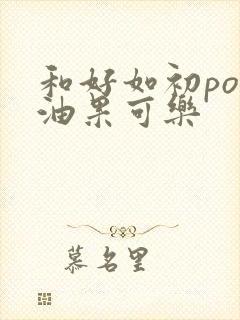 和好如初po
油果可樂
慕名里